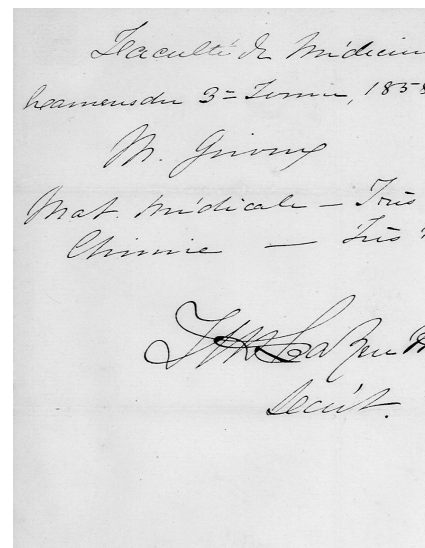 Faculté de Médicin
Examens du 3= Terme, 1858
M. Giroux
Mat. Médicale — Très
Chimie — Très
LaRue
Secrét.